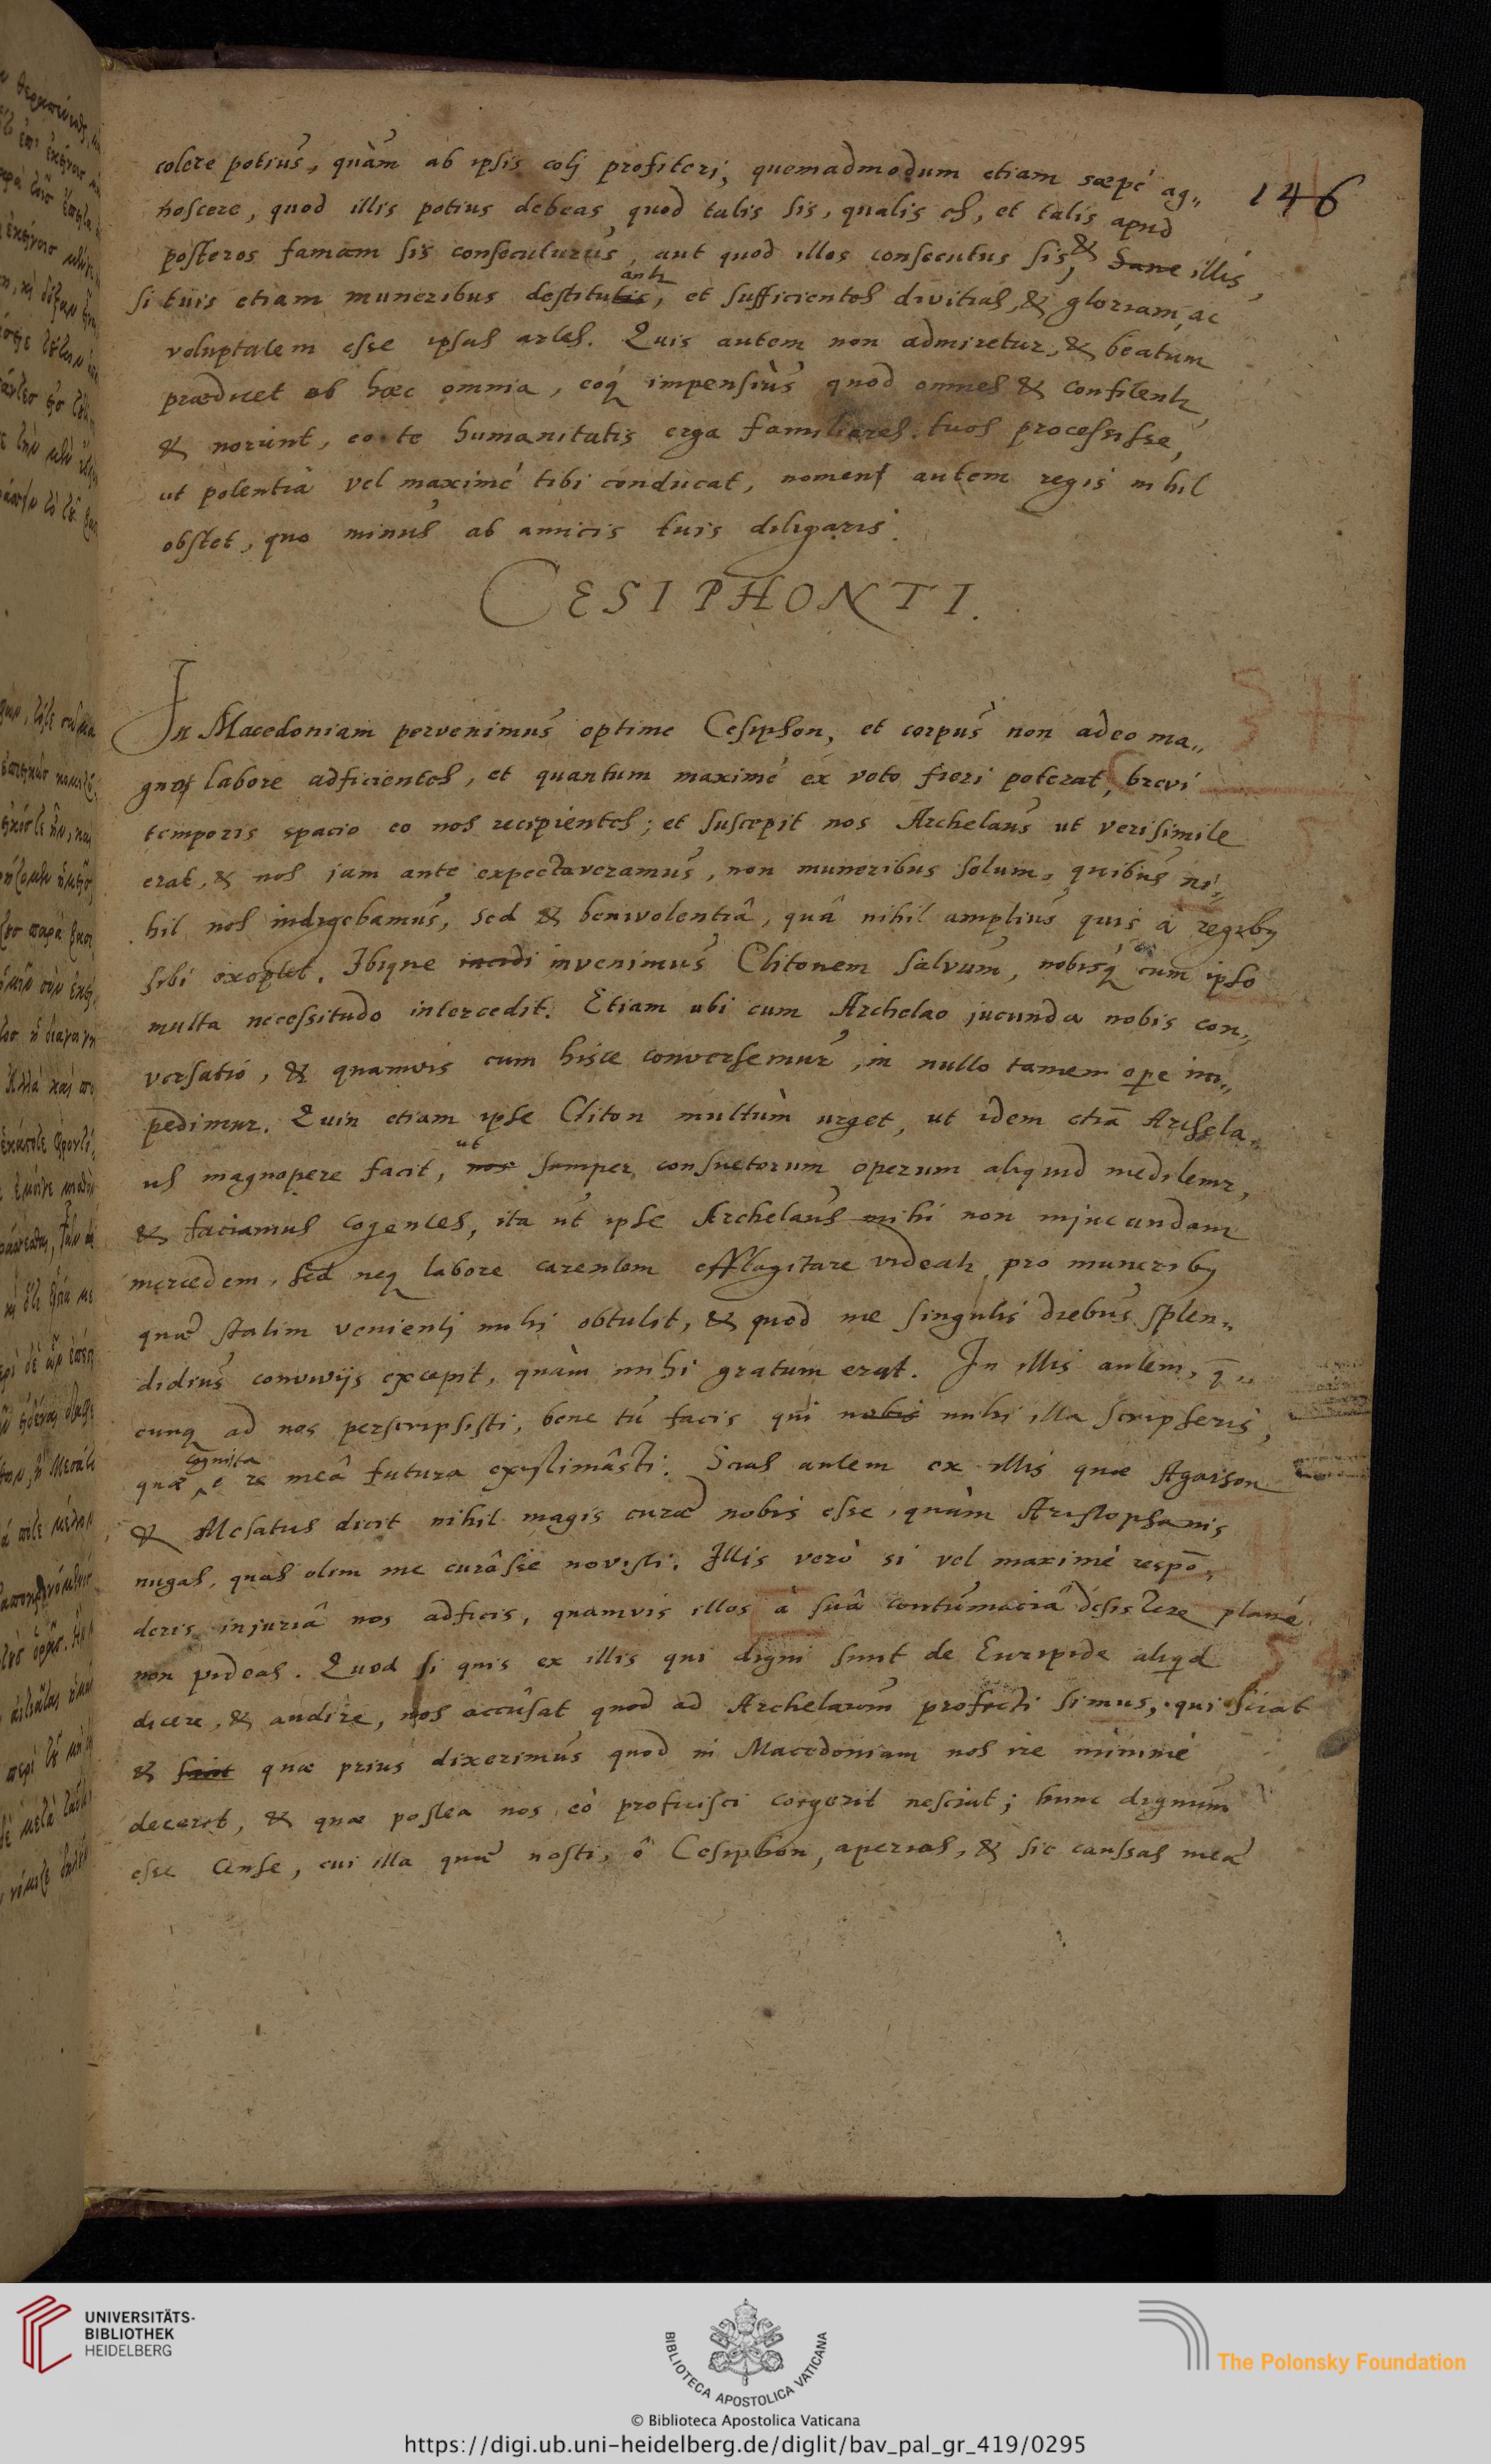 colere potius, quàm ab ipsis colj profiteri; quemadmodum etiam sæpè ag„
146
noscere, quod illis potius debeas quod talis sis, qualis es, et talis apud
posteros famam sis consecuturus, aut quod illos consecutus sis, & illis,
si tuis etiam muneribus destituantr, et sufficientes divitias, & gloriam, ac
voluptatem esse ipsas artes. Quis autem non admiretur, & beatum
prædicet ob hæc omnia, eoq́ impensiùs quod omnes & confitentr
& norunt, eo te humanitatis erga familiares tuos processisse,
ut potentia vel maximè tibi conducat, nomen autem regis nihil
obstet, quo minus ab amicis tuis diligaris.
CESIPHONTI.
In Macedoniam pervenimus optime Cesiphon, et corpus non adeo ma„
gno labore adficientes, et quantum maximè ex voto fieri poterat, brevi
temporis spacio eo nos recipientes; et suscepit nos Archelaus ut verisimile
erat, & nos jam ante expectaveramus, non muneribus solum, quibus ni„
hil nos indigebamus, sed & benivolentiâ, quâ nihil amplius quis à regibus
sibi exoptet. Ibique incidi invenimus Clitonem salvum, nobisq́ cum ipso
multa necessitudo intercedit. Etiam ubi cum Archelao jucunda nobis con„
versatio, & quamvis cum hisce conversemur, in nullo tamen ope im„
pedimur. Quin etiam ipse Cliton multùm urget, ut idem etiā Archela„
us magnopere facit, ut semper consuetorum operum aliquid meditemr,
& faciamus cogentes, ita ut ipse Archelaus mihi non injucundam
mercedem, sed neq labore carentem efflagitare videatr pro muneribus
quæ statim venientj mihi obtulit, & quod me singulis diebus splen„
didius convivijs excepit, quàm mihi gratum erat. In illis autem, q̄„
cunq ad nos perscripsisti, bene tu facis qui nobis mihi illa scripseris,
quæ cognita e re meâ futura existimâsti. Scias autem ex illis quæ Agaison
& Mesatus dicit nihil magis curæ nobis esse, quàm Aristophanis
nugas, quas olim me curâsse novisti. Illis verò si vel maximè respō„
deris injuriâ nos adficis, quamvis illos à suâ contumaciâ desistere planè
non videas. Quod si quis ex illis qui digni sunt de Euripide aliqd
dicere, & audire, nos accusat quod ad Archelaum profecti simus, qui sciat
& quæ prius dixerimus quod in Macedoniam nos ire minimè
deceret, & quæ postea nos eò proficisci coegerit nesciat; hunc dignum
esse cense, cui illa quæ nosti, ô Cesiphon, aperias, & sic caussas meæ
UNIVERSITÄTS-
BIBLIOTHEK
HEIDELBERG
BIBLIOTECA APOSTOLICA VATICANA
The Polonsky Foundation
© Biblioteca Apostolica Vaticana
https://digi.ub.uni-heidelberg.de/diglit/bav_pal_gr_419/0295